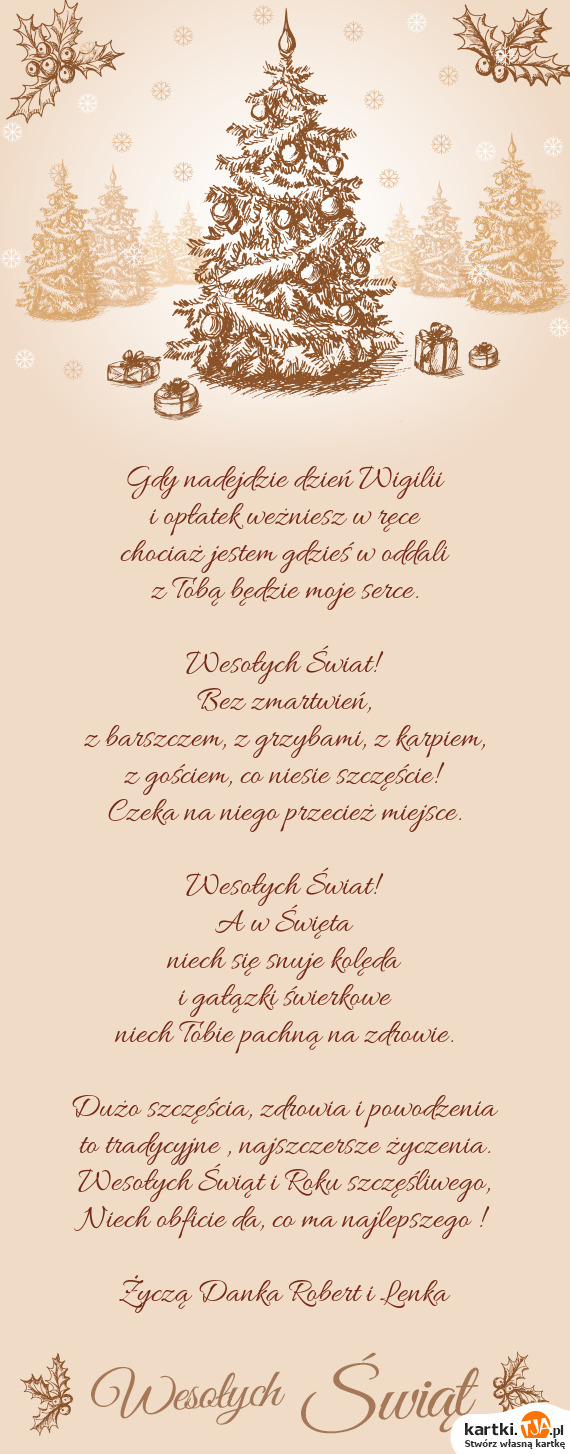 Gdy nadejdzie dzień Wigilii
i opłatek weżniesz w ręce
chociaż jestem gdzieś w oddali
z Tobą będzie moje serce.
Wesołych Świat!
Bez zmartwień,
z barszczem, z grzybami, z karpiem,
z gościem, co niesie szczęście!
Czeka na niego przecież miejsce.
Wesołych Świat!
A w Święta
niech się snuje kolęda
i gałązki świerkowe
niech Tobie pachną na zdrowie.
Dużo szczęścia, zdrowia i powodzenia
to tradycyjne , najszczersze życzenia.
Wesołych Świąt i Roku szczęśliwego,
Niech obficie da, co ma najlepszego !
Życzą Danka Robert i Lenka
Wesołych Świąt
kartki.TJA.pl
Stwórz własną kartkę